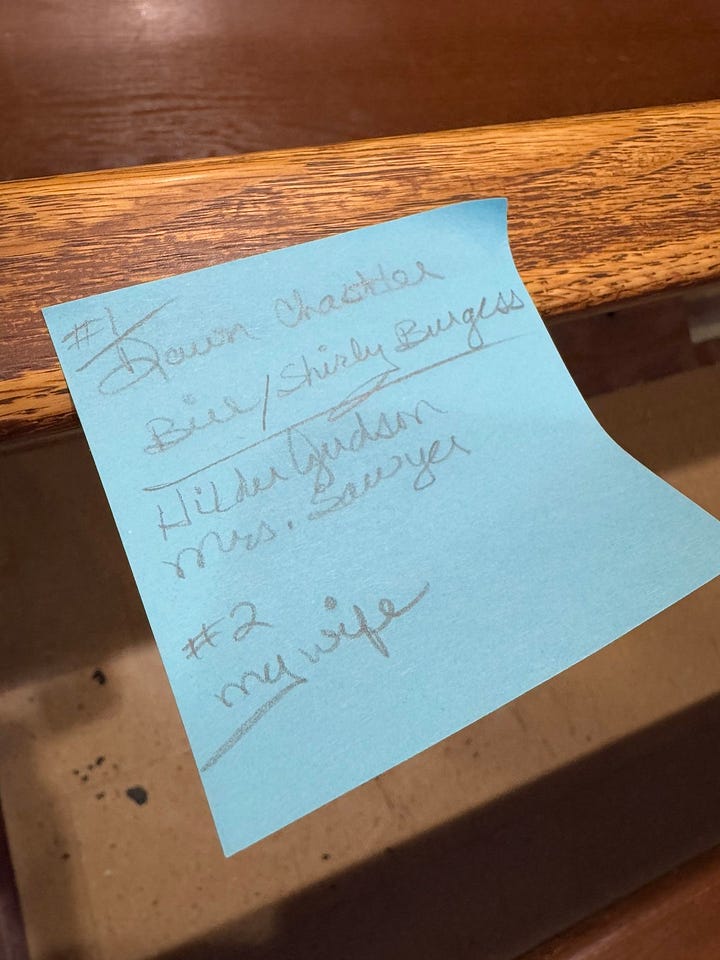 #1
Dawn
Bill/Shirly Burgess
Hilda Judson
Mrs. Sawyer
#2
my wife